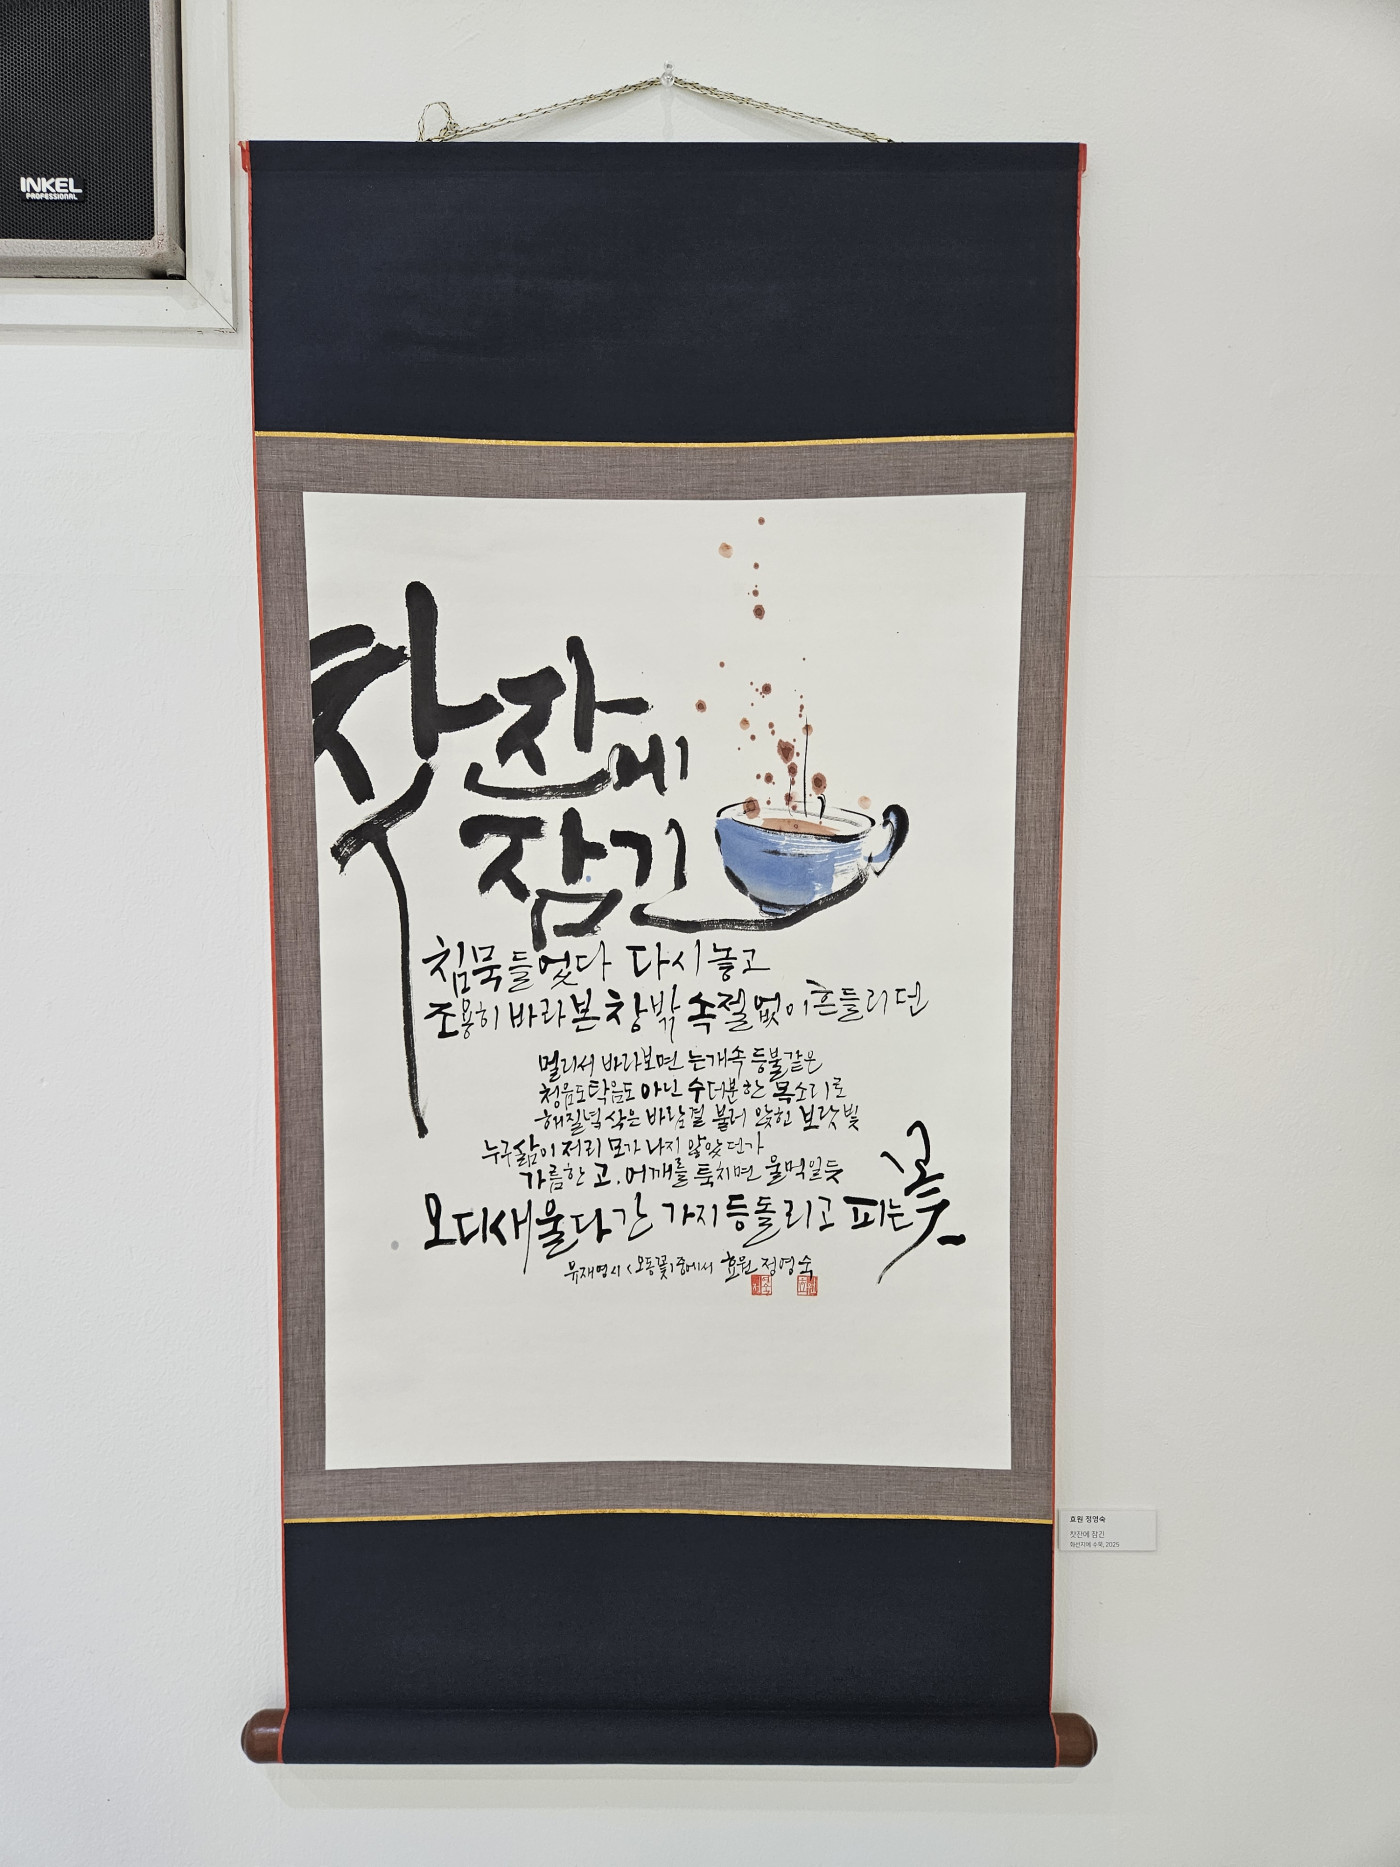 INKEL
PROFESSIONAL
찻잔에
잠긴
침묵 들었다 다시 놓고
조용히 바라본 창밖 속절없이 흔들리던
멀리서 바라보면 는개 속 등불 같은
청음도 탁음도 아닌 수더분한 목소리로
해질녘 삭은 바람결 불러 앉힌 보랏빛
누구 삶이 저리 모가 나지 않았던가
가름한 고, 어깨를 툭 치면 울먹일 듯
오디새 울다 간 가지 등 돌리고 피는 꽃
뮤재영 시 <오동꽃> 중에서 효원 정영숙
효원 정영숙
찻잔에 잠긴
화선지에 수묵, 2025